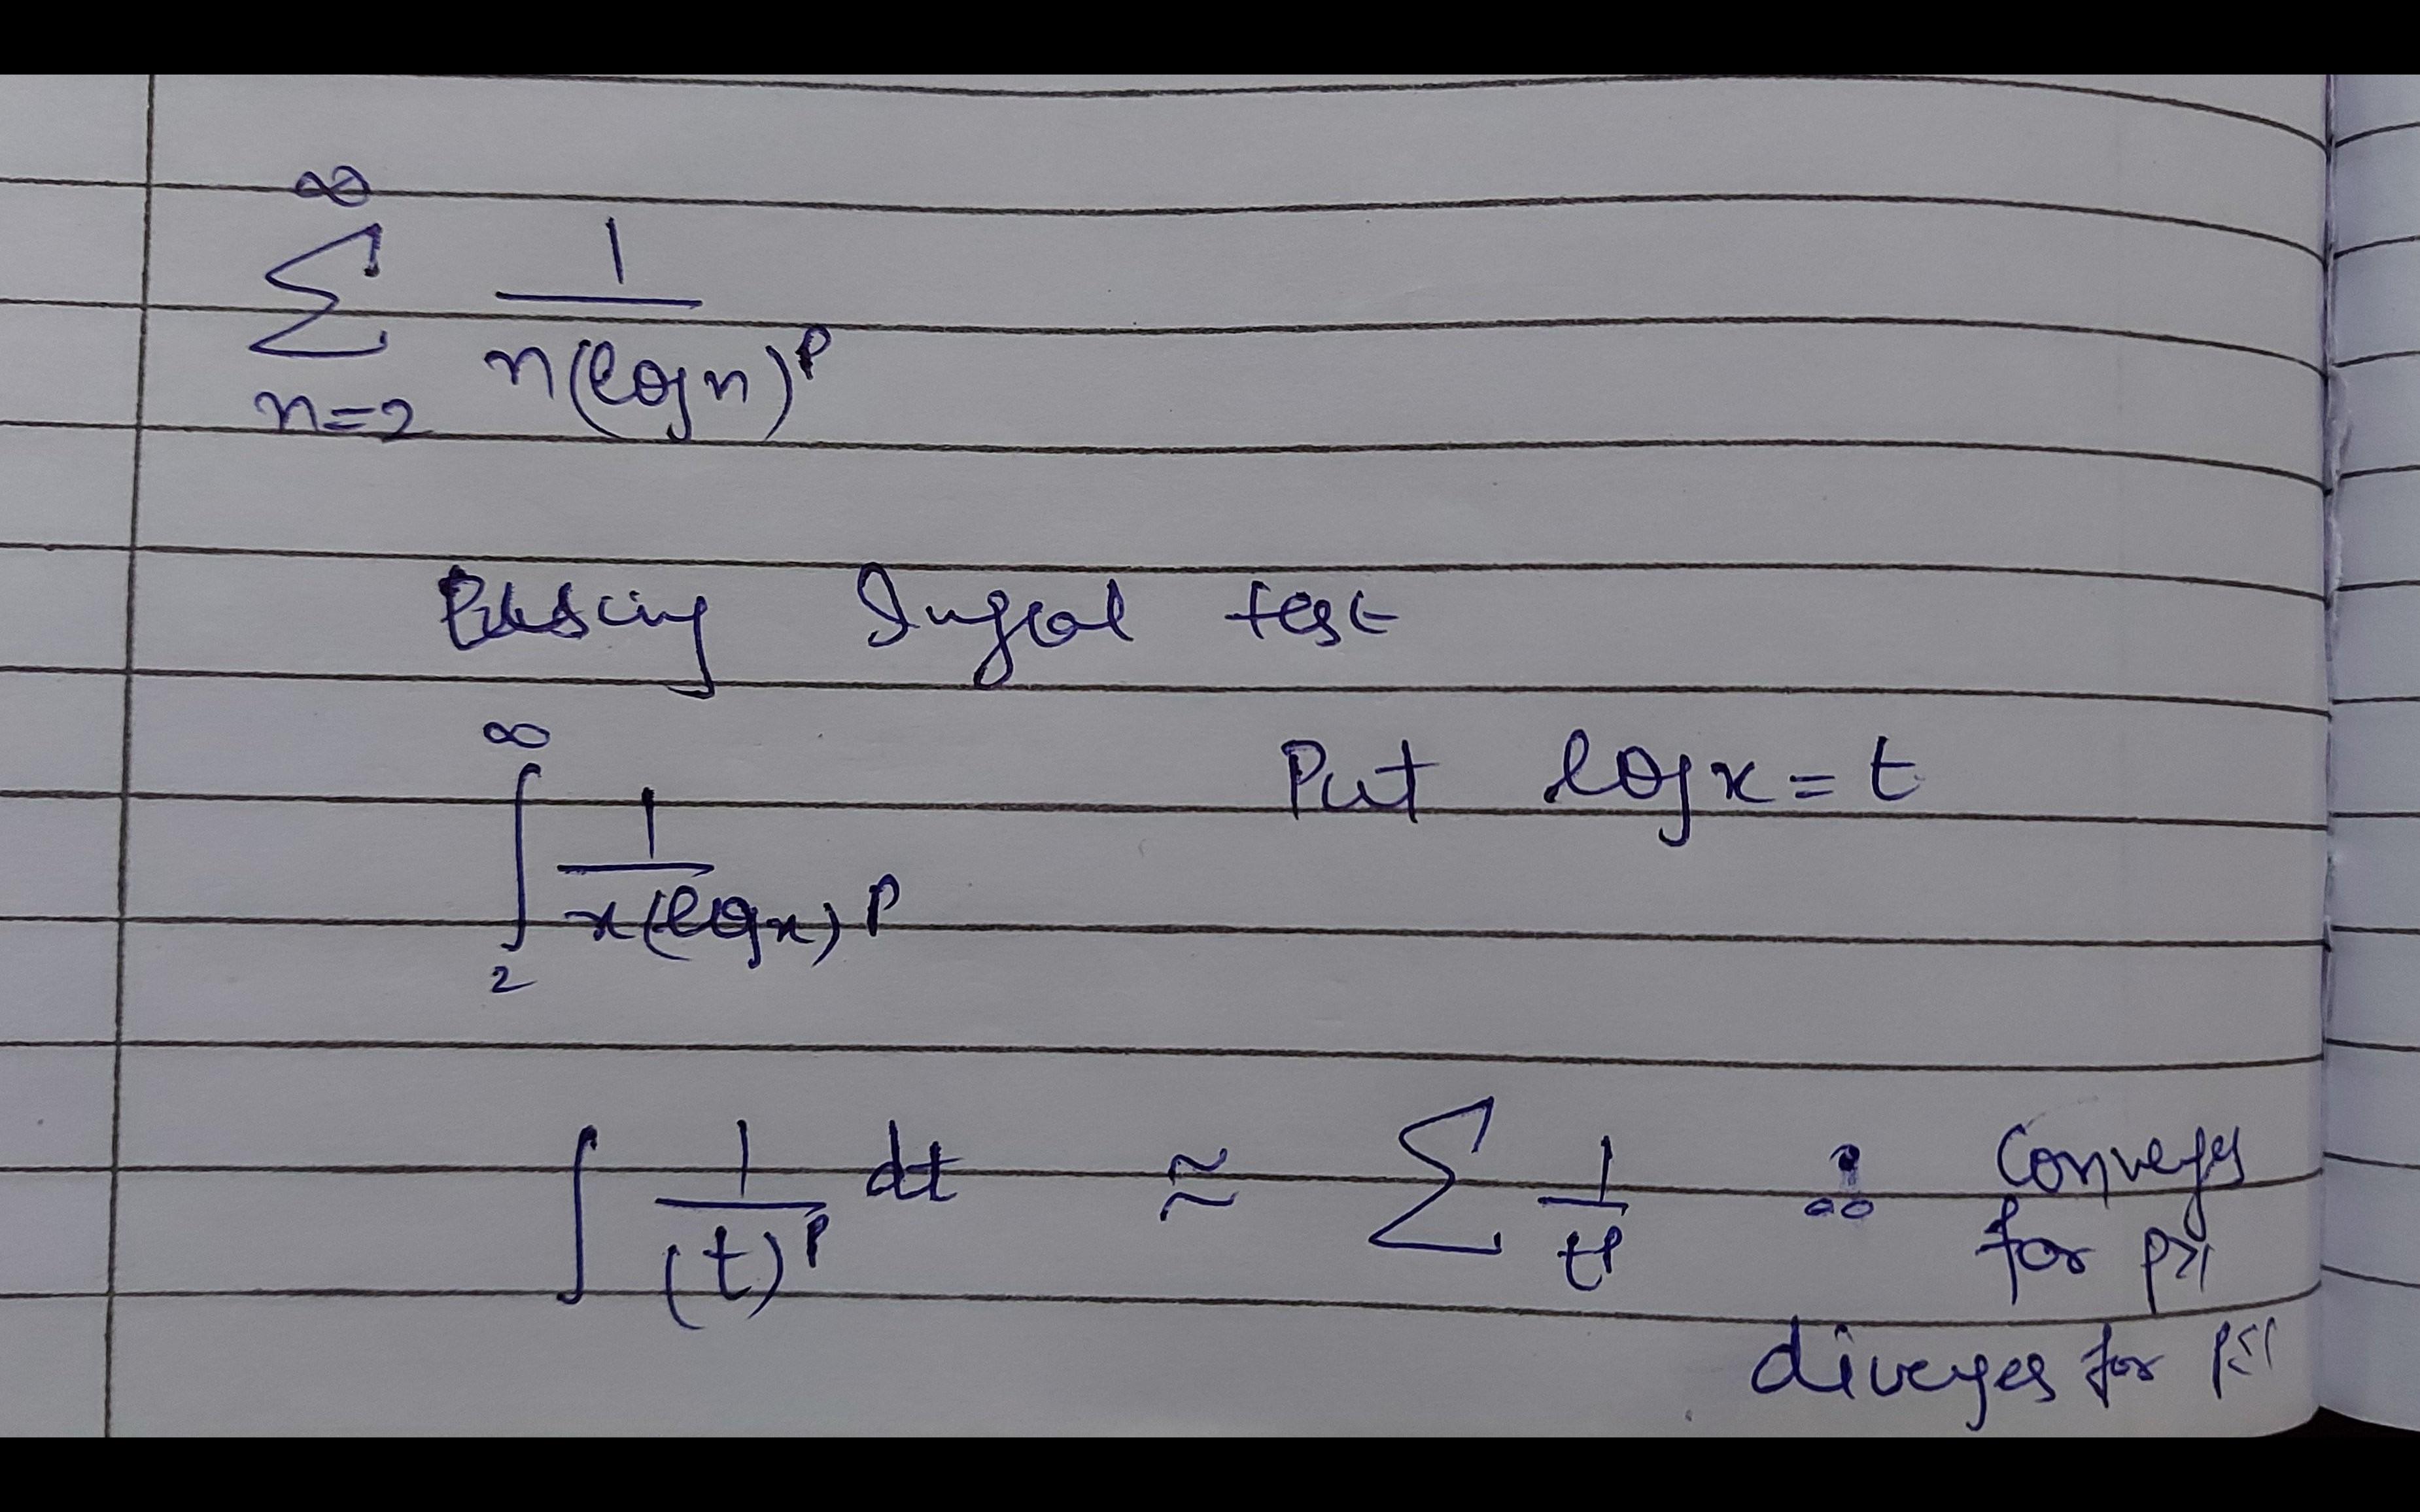 ∞
∑ 1 / n(log n)^p
n=2
Integral test
∞
∫ 1 / x(log x)^p Put log x = t
2
∫ 1/(t)^p dt ≈ ∑ 1/t^p ∴ Converges
for p>1
diverges for p≤1